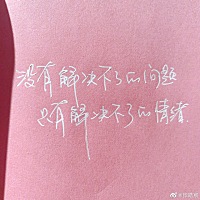 没有解决不了的问题
只有解决不了的情绪